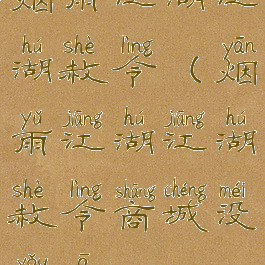 烟雨江湖江
hú shè lìng yān
湖赦令（烟
yǔ jiāng hú jiāng hú
雨江湖江湖
shè lìng shāng chéng méi
赦令商城没
yǒu